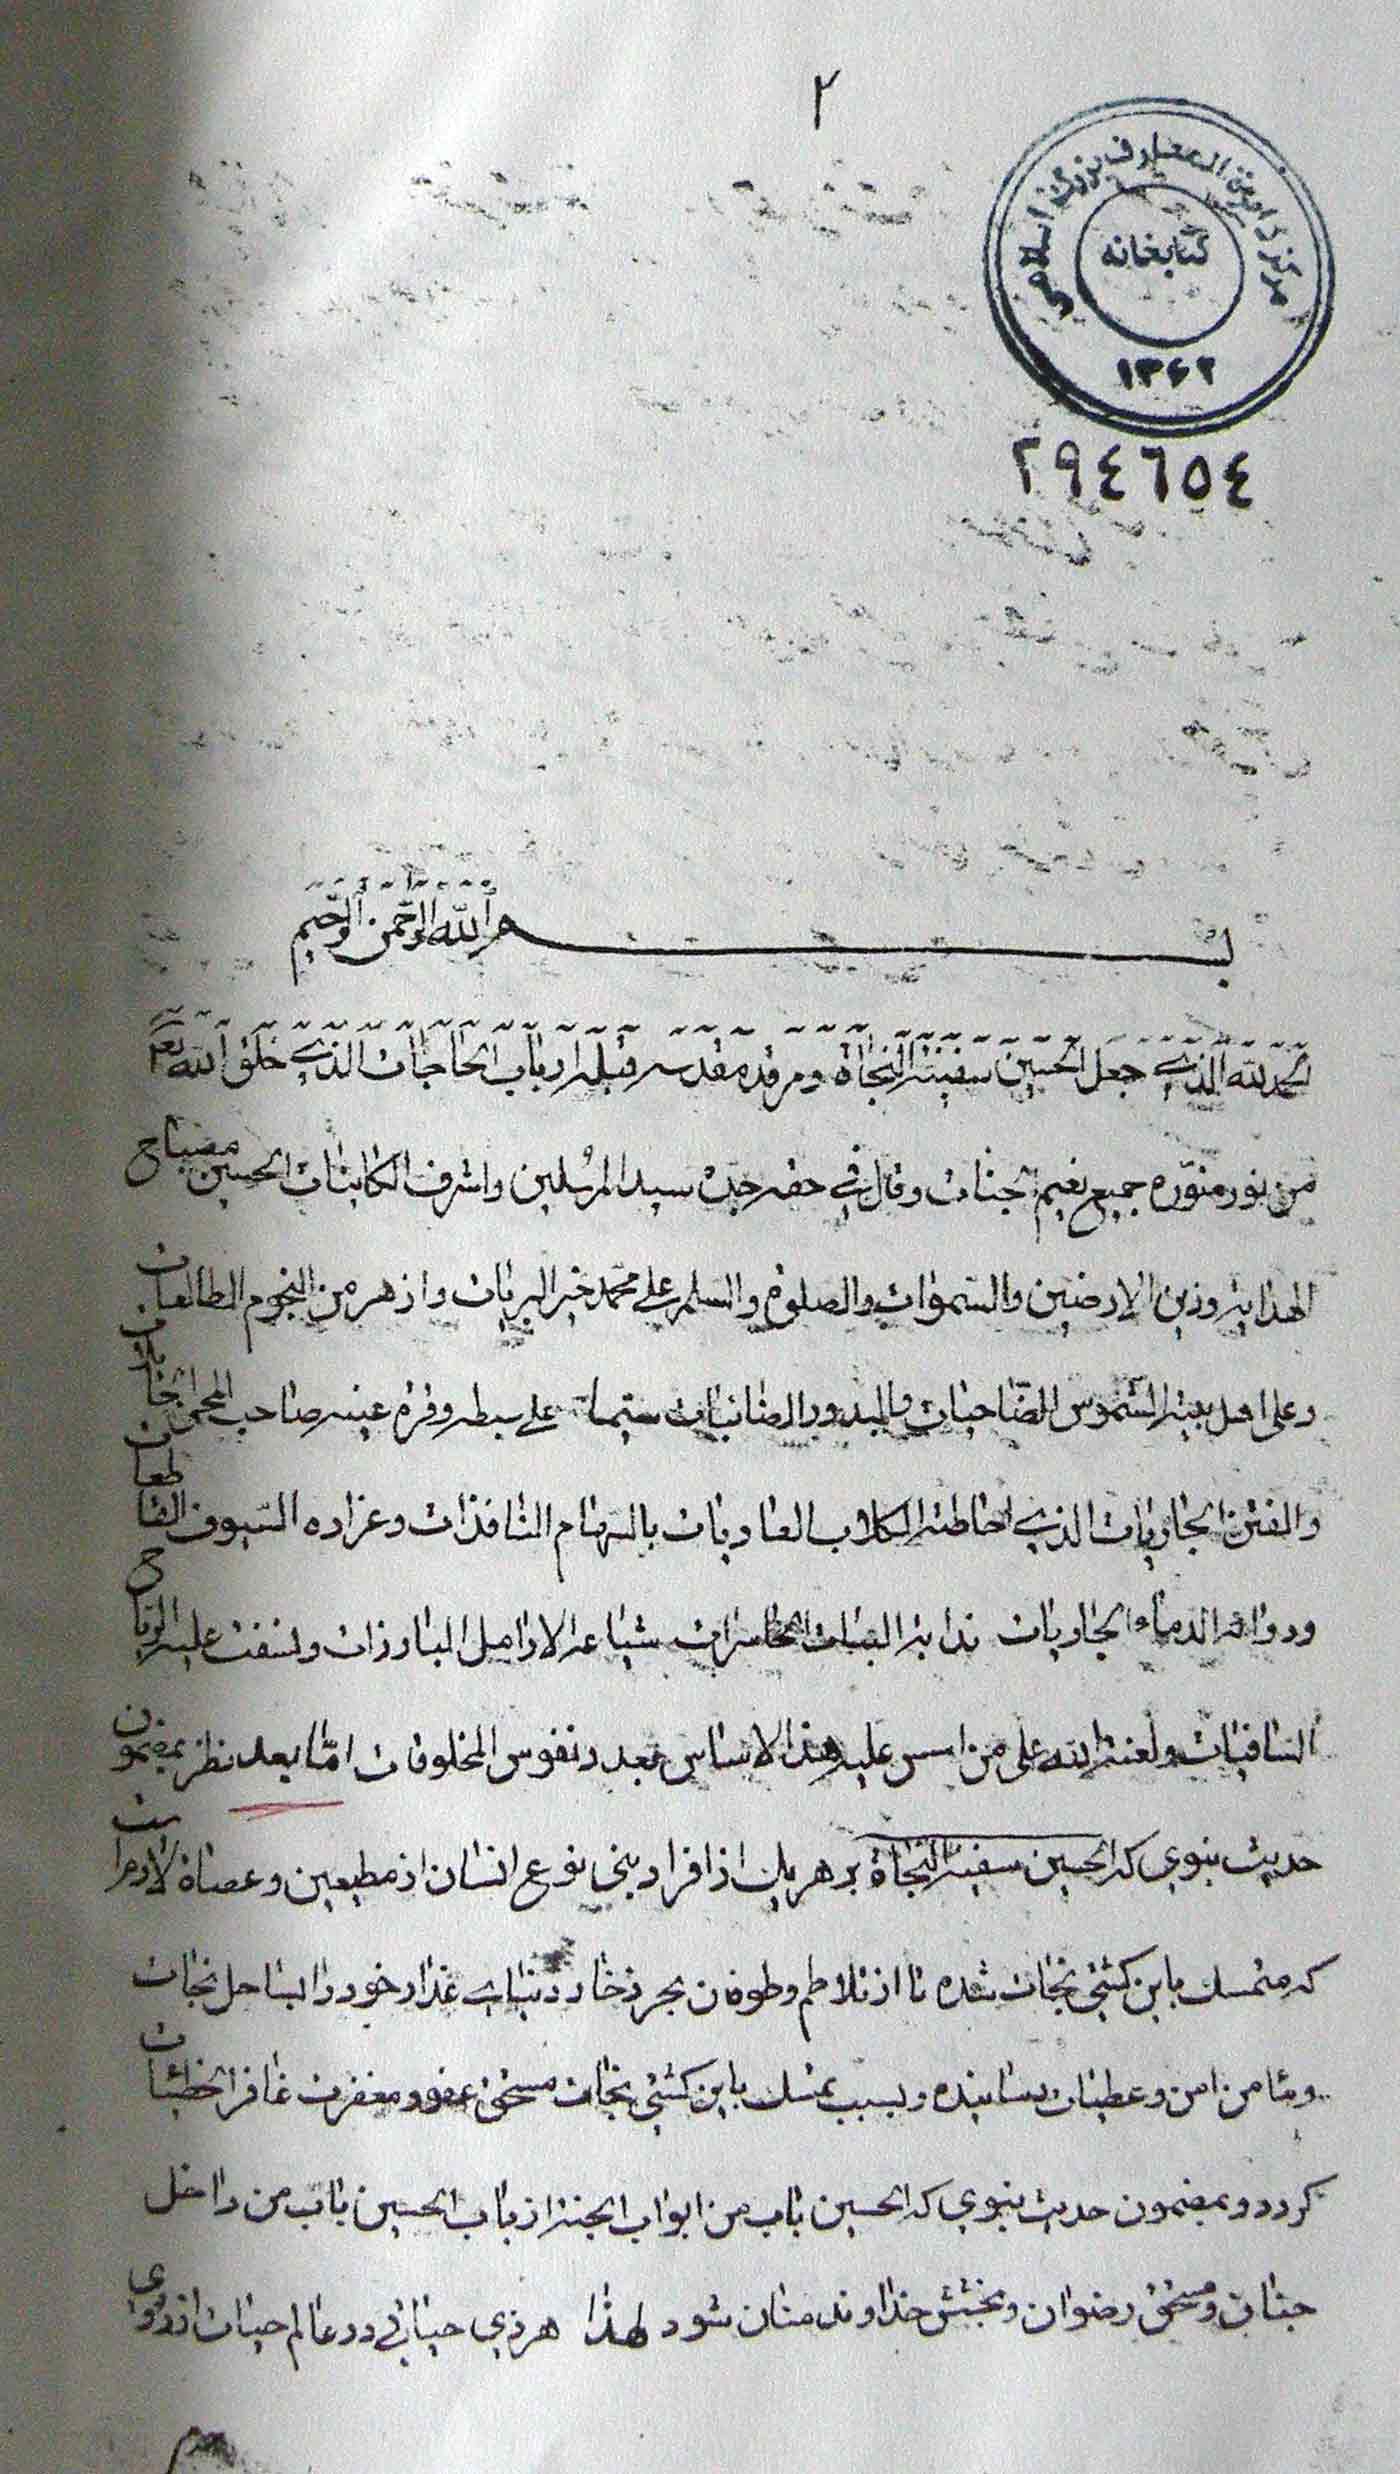 ۲
مرکز دایرة المعارف بزرگ اسلامی
کتابخانه
۱۳۶۲
۲۹٤٦٥٤
بسم الله الرحمن الرحیم
الحمد لله الذی جعل الحسین سفینة النجاة و مرقده مقدسه قبله ارباب الحاجات الذی خلق الله
من نور منوره جمیع نعیم الجنات و قال فی حقه جده سید المرسلین و اشرف الکاینات الحسین مصباح
الهدایة و زین الارضین والسموات والصلوة والسلم علی محمد خیر البریات و ازهر من النجوم الطالعات
و علی اهل بیته الشموس الضاحیات والبدور سیما علی سبطه و قرة عینه صاحب المحن
والفتن الذی احاطته الکلاب العاویات بالسهام النافذات و السیوف
الدماء الجاریات الارامل البارزات و علیه الریاح
السافیات و لعنة الله علی من اسس علیه هذا الاساس بعدد نفوس المخلوقات اما بعد نظر بمضمون
حدیث نبوی که الحسین سفینة النجاة بر هر یک از افراد بنی نوع انسان از مطیعین و عصاة لازمست
که متمسک باین کشتی نجات شده تا از تلاطم و طوفان بحر ذخار دنیای غدار خود را بساحل نجات
و مامن امن و رسانیده و بسبب تمسک باین کشتی نجات مستحق عفو و مغفرت غافر الخطیئات
کردد و بمضمون حدیث نبوی که الحسین باب من ابواب الجنة از باب الحسین باب من داخل
جنان و مستحق رضوان و بخشش خداوند منان شود لهذا هر ذی حیاتی در عالم حیات از